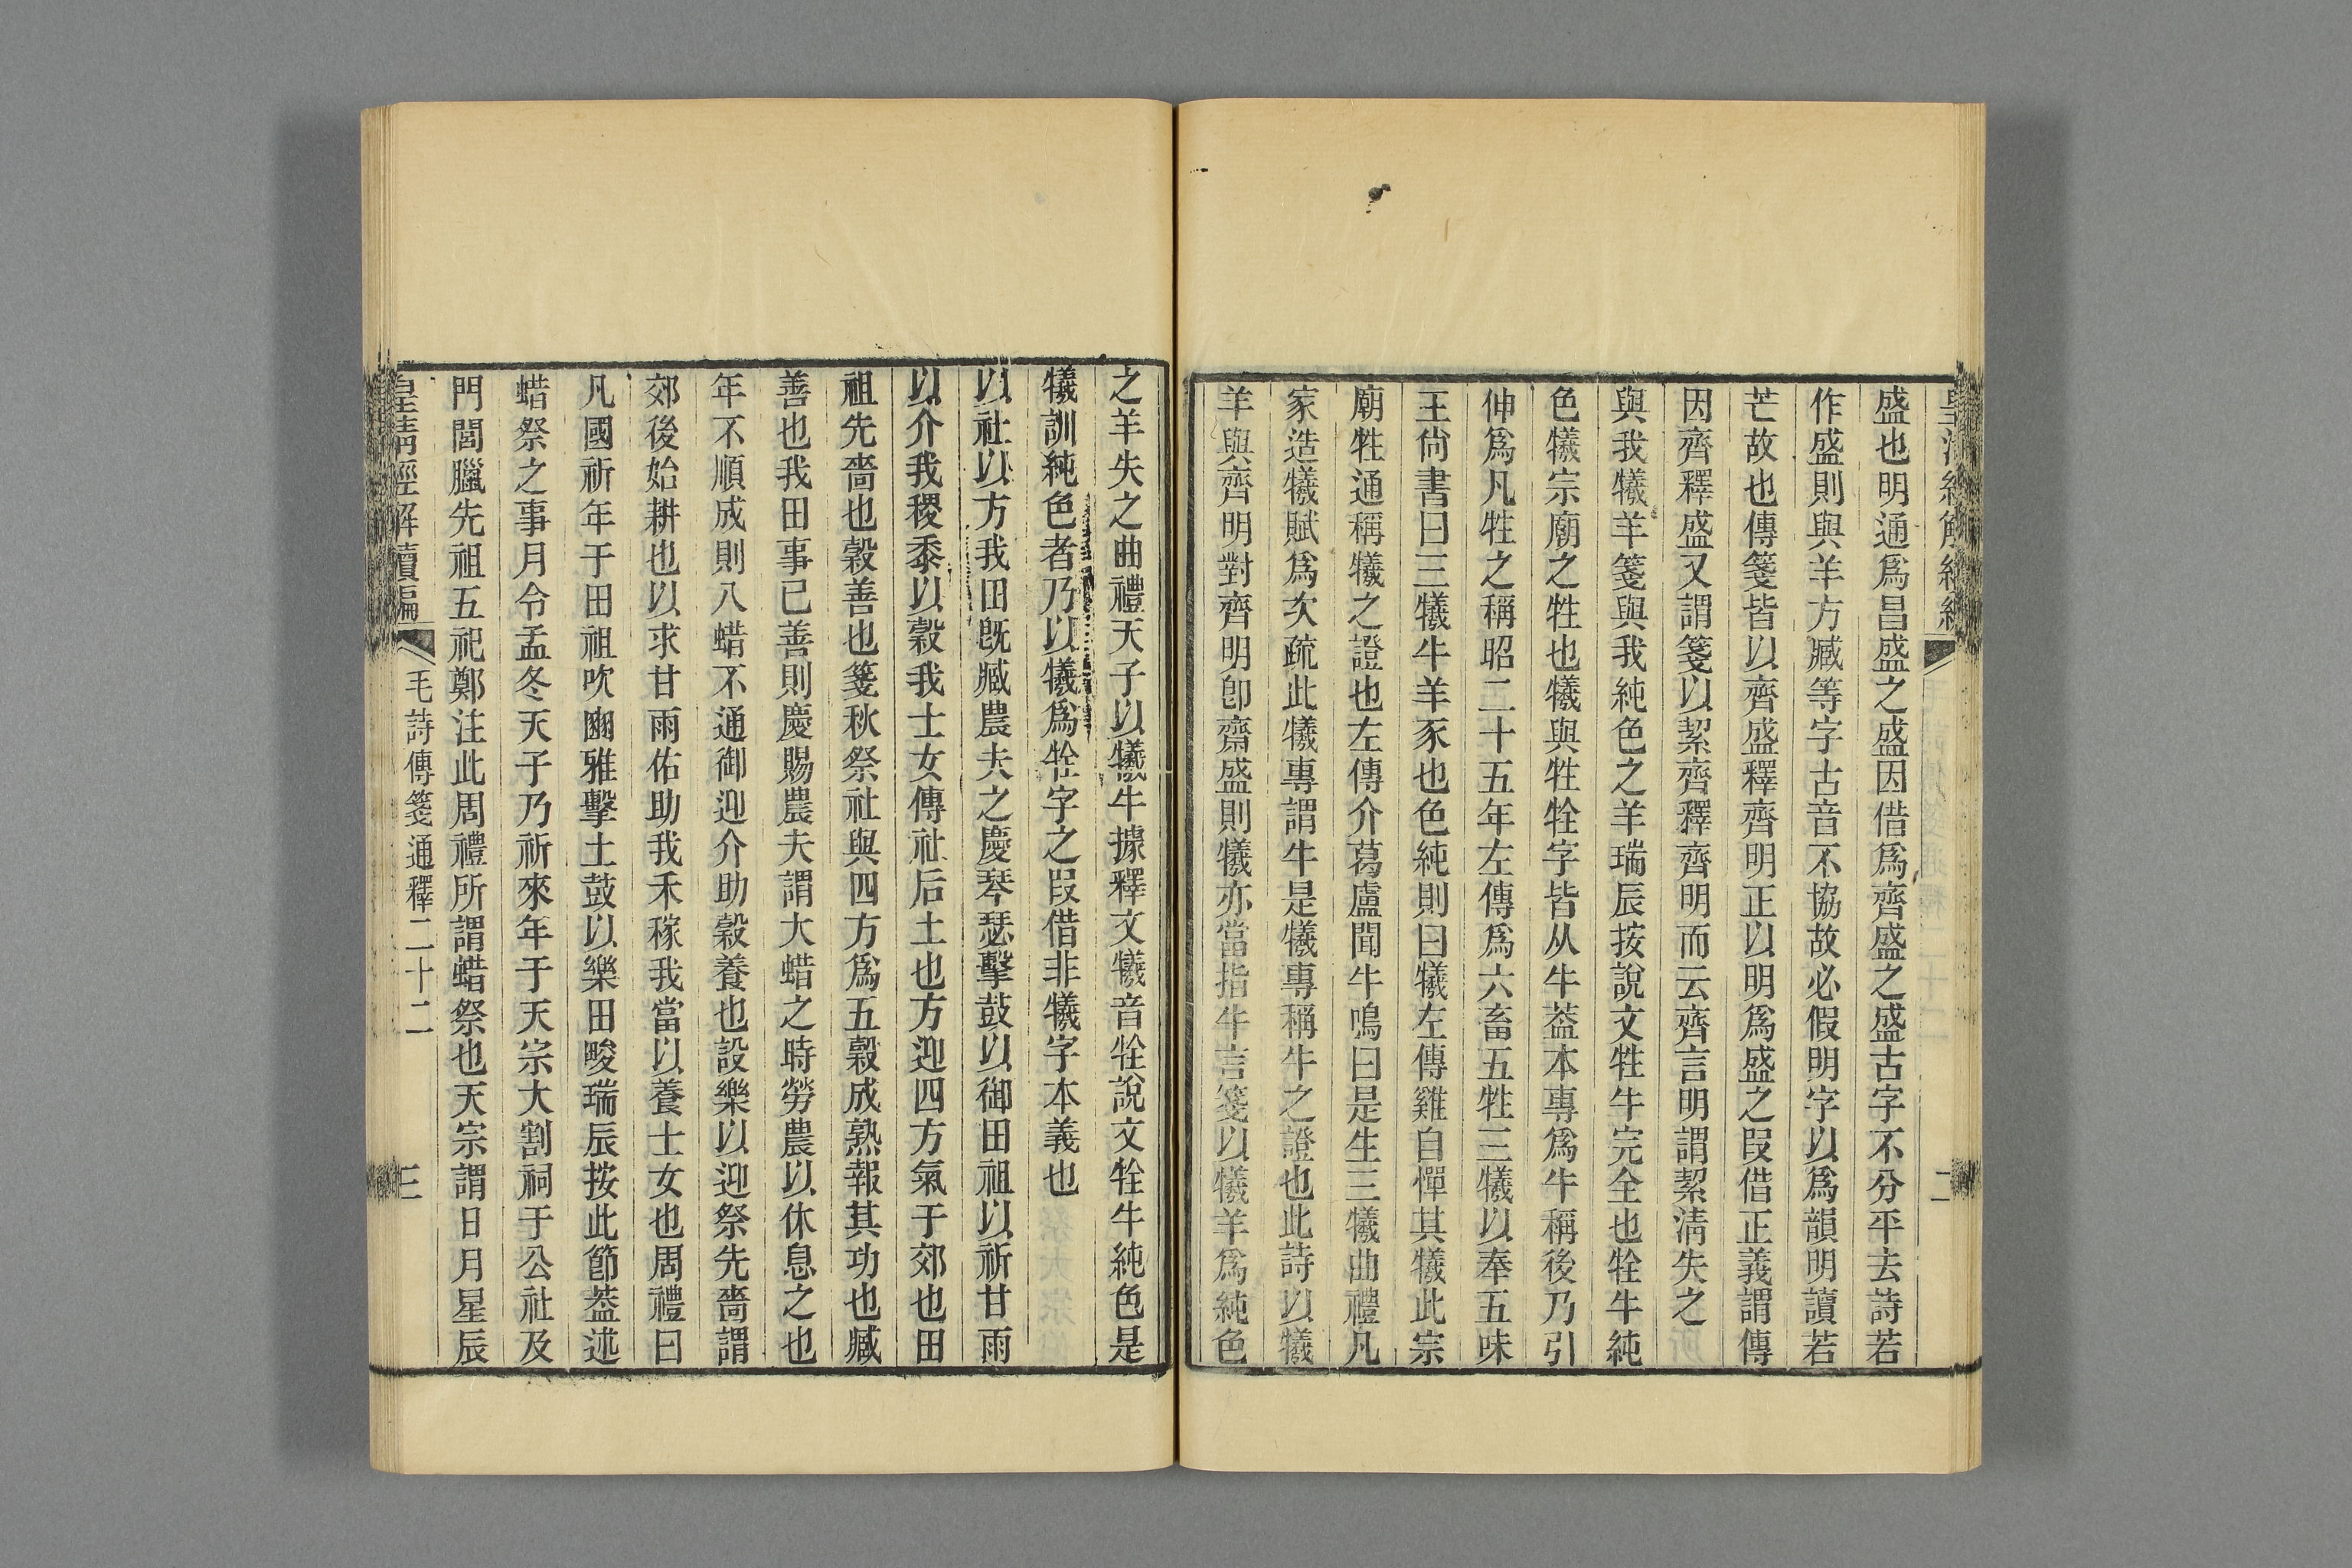 盛也明通爲昌盛之盛因借爲齊盛之盛古字不分平去詩若
作盛則與羊方臧等字古音不協故必假明字以爲韻明讀若
芒故也傳箋皆以齊盛釋齊明正以明爲盛之叚借正義謂傳
因齊釋盛又謂箋以絜齊釋齊明而云齊言明謂絜淸失之
與我犧羊箋與我純色之羊瑞辰按說文牲牛完全也牷牛純
色犧宗廟之牲也犧與牲牷字皆从牛葢本專爲牛稱後乃引
伸爲凡牲之稱昭二十五年左傳爲六畜五牲三犧以奉五味
王尙書曰三犧牛羊豕也色純則曰犧左傳雞自憚其犧此宗
廟牲通稱犧之證也左傳介葛盧聞牛鳴曰是生三犧曲禮凡
家造犧賦爲次疏此犧專謂牛是犧專稱牛之證也此詩以犧
羊與齊明對齊明卽齋盛則犧亦當指牛言箋以犧羊爲純色
之羊失之曲禮天子以犧牛據釋文犧音牷說文牷牛純色是
犧訓純色者乃以犧爲牷字之叚借非犧字本義也
以社以方我田旣臧農夫之慶琴瑟擊鼓以御田祖以祈甘雨
以介我稷黍以穀我士女傳社后土也方迎四方氣于郊也田
祖先嗇也穀善也箋秋祭社與四方爲五穀成熟報其功也臧
善也我田事已善則慶賜農夫謂大蜡之時勞農以休息之也
年不順成則八蜡不通御迎介助穀養也設樂以迎祭先嗇謂
郊後始耕也以求甘雨佑助我禾稼我當以養士女也周禮曰
凡國祈年于田祖吹豳雅擊土鼓以樂田畯瑞辰按此節葢述
蜡祭之事月令孟冬天子乃祈來年于天宗大割祠于公社及
門閭臘先祖五祀鄭注此周禮所謂蜡祭也天宗謂日月星辰
皇淸經解續編
毛詩傳箋通釋二十二
三